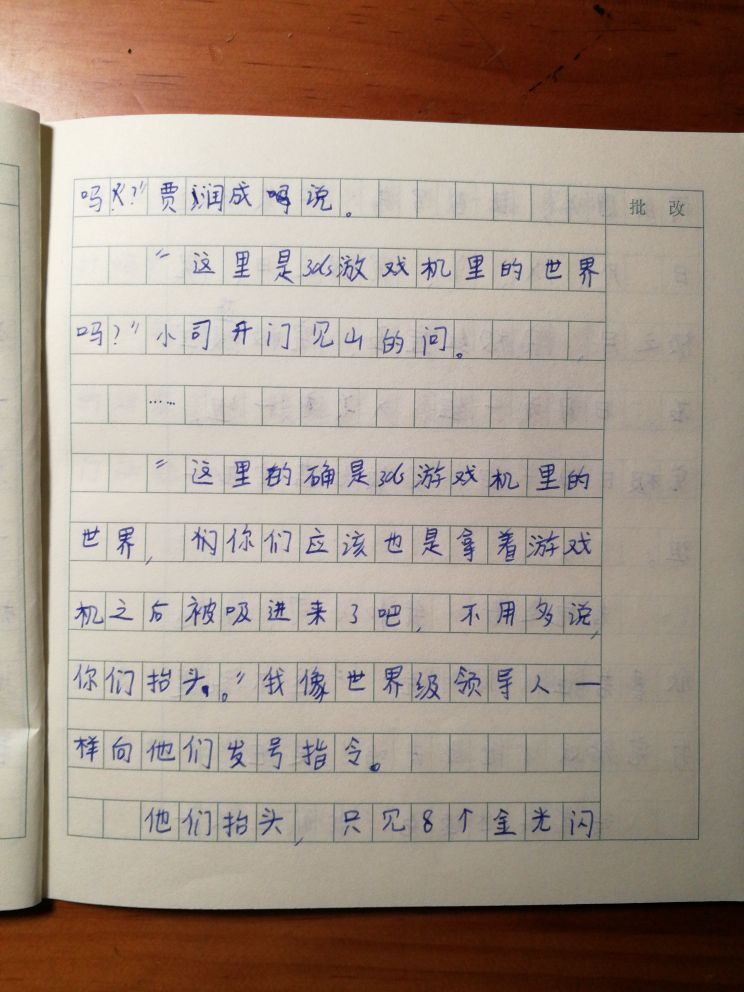 吗？”贾润成说。
批改
“这里是3ds游戏机里的世界
吗？”小司开门见山的问。
……
“这里的确是3ds游戏机里的
世界，你们应该也是拿着游戏
机之后被吸进来了吧，不用多说，
你们抬头。”我像世界级领导人一
样向他们发号指令。
他们抬头，只见8个金光闪